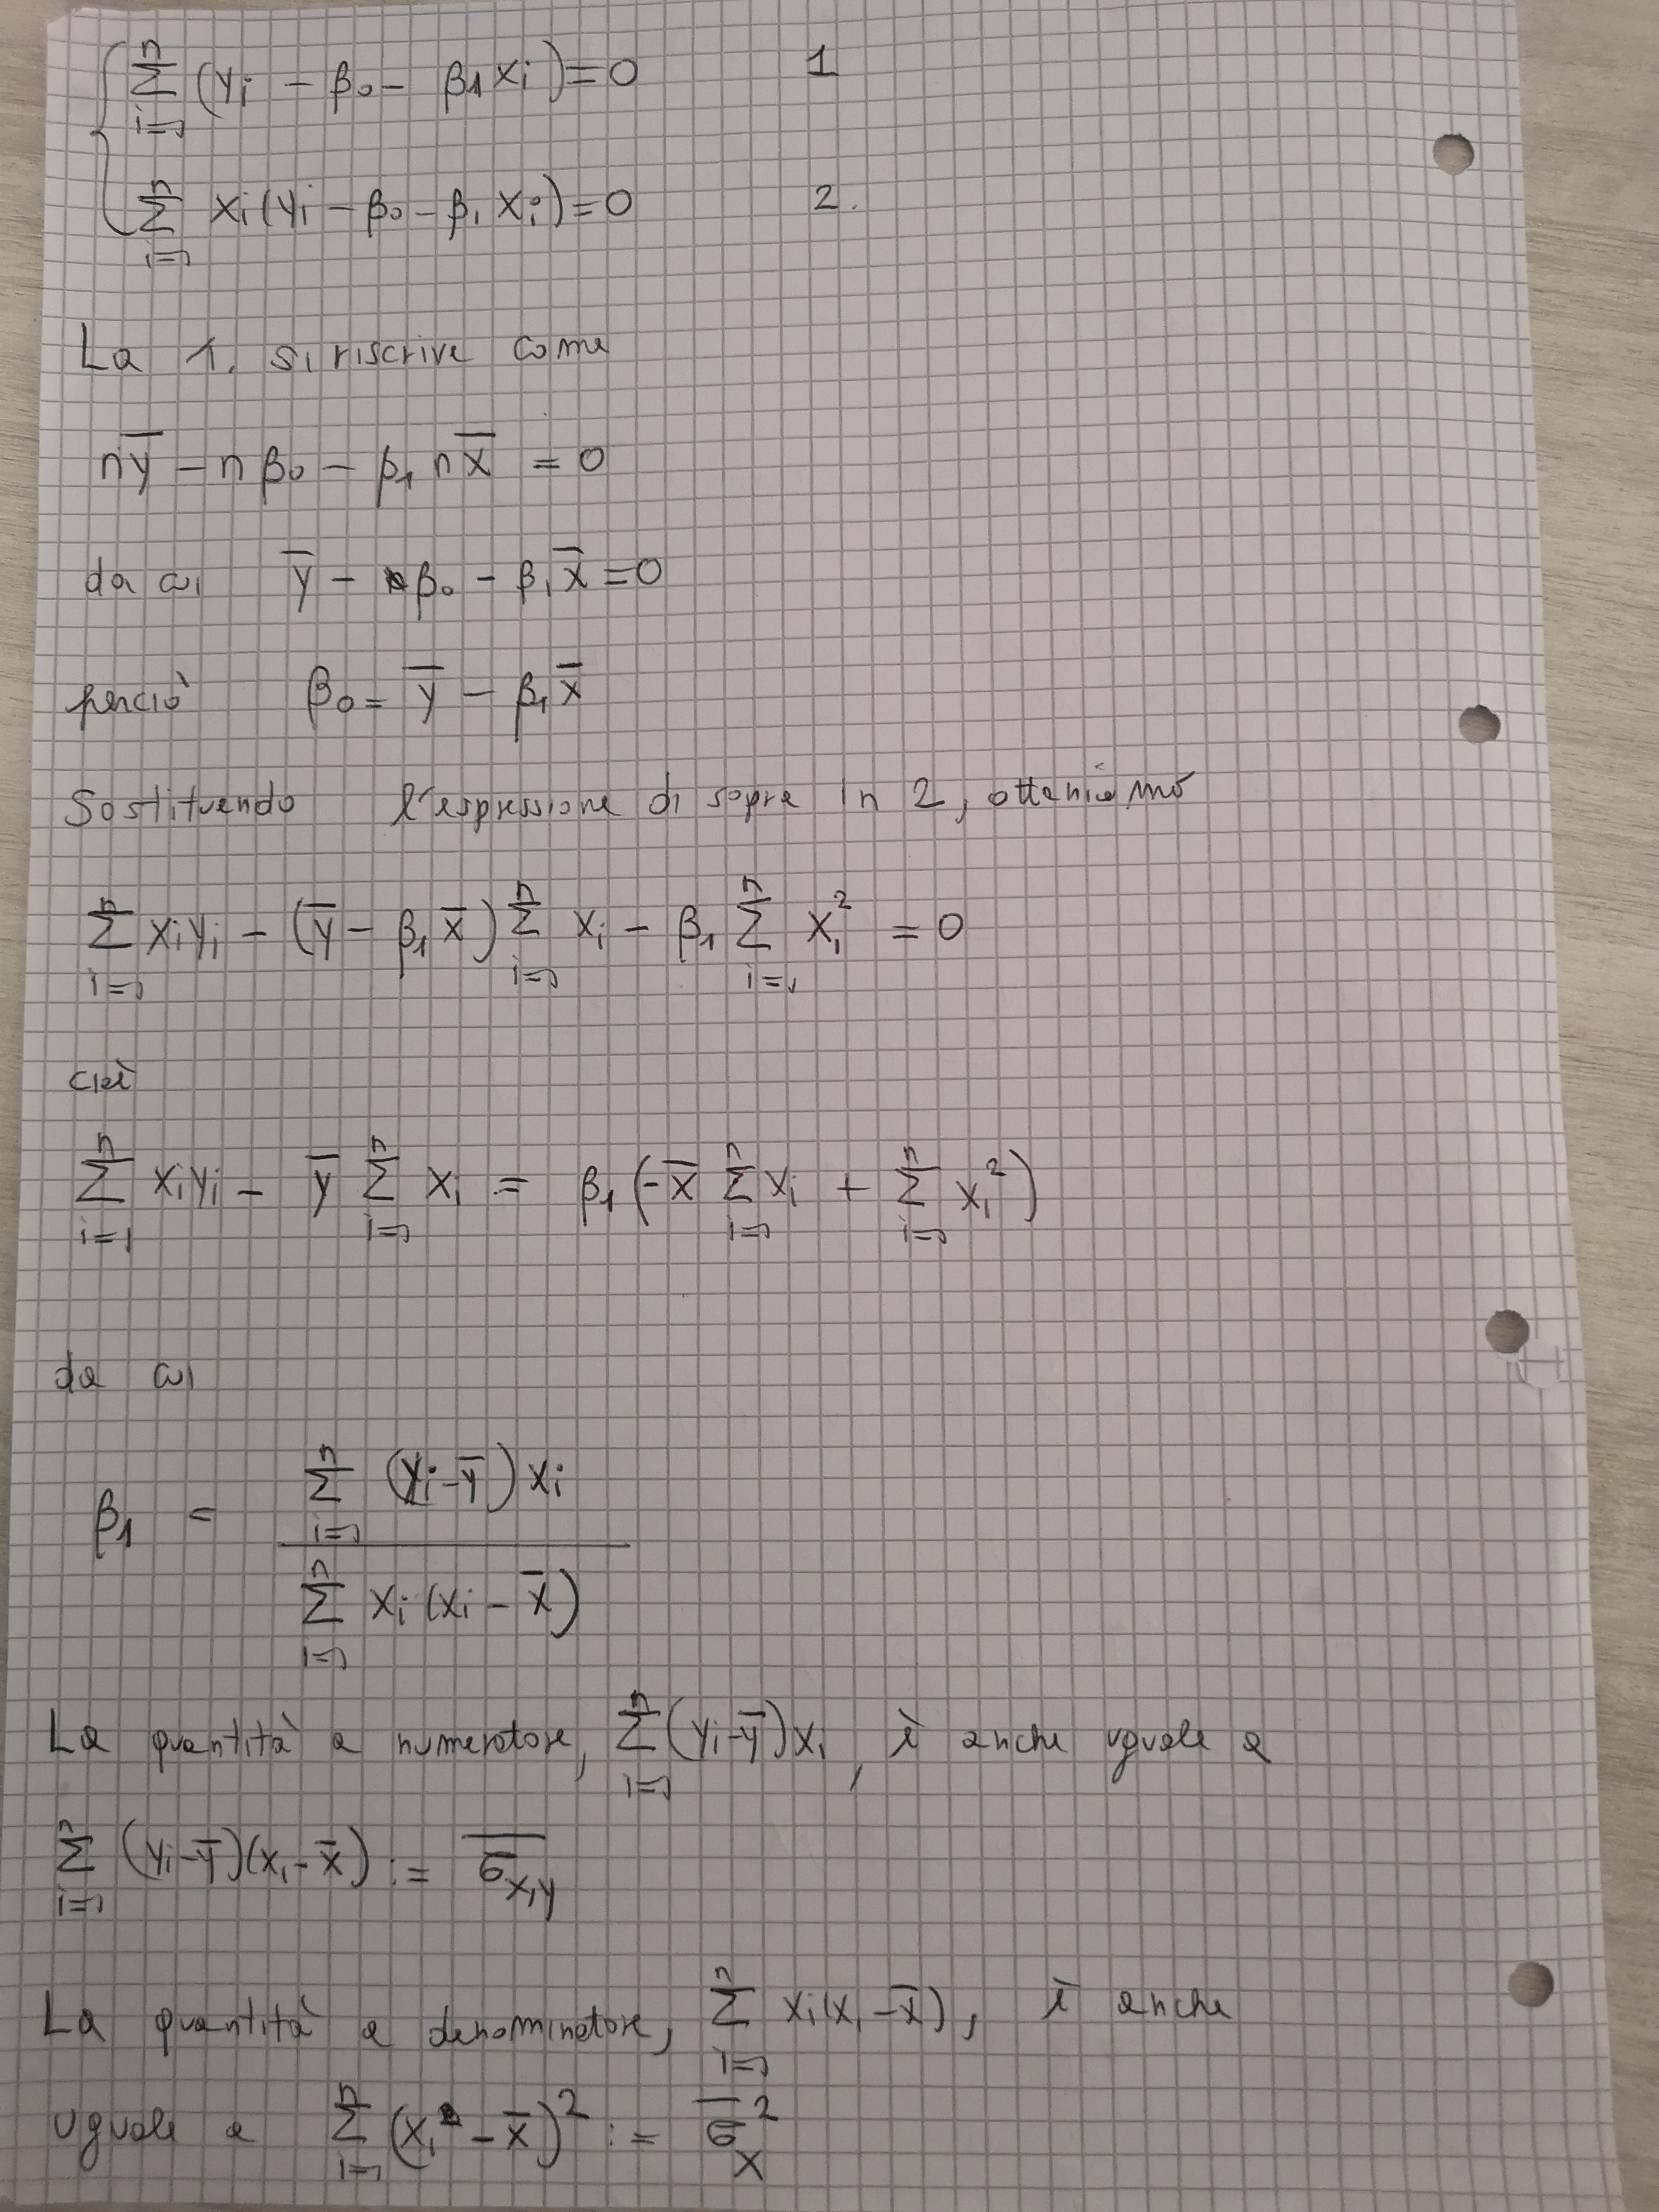 { ∑_{i=1}^{n} (yi - β0 - β1 xi) = 0    1
∑_{i=1}^{n} xi (yi - β0 - β1 xi) = 0    2.
La 1. si riscrive come
nȳ - nβ0 - β1 nx̄ = 0
da cui ȳ - β0 - β1 x̄ = 0
perciò β0 = ȳ - β1 x̄
Sostituendo l'espressione di sopra in 2, otteniamo
∑_{i=1}^{n} xi yi - (ȳ - β1 x̄) ∑_{i=1}^{n} xi - β1 ∑_{i=1}^{n} xi² = 0
cioè
∑_{i=1}^{n} xi yi - ȳ ∑_{i=1}^{n} xi = β1 (-x̄ ∑_{i=1}^{n} xi + ∑_{i=1}^{n} xi²)
da cui
β1 = ∑_{i=1}^{n} (yi - ȳ) xi / ∑_{i=1}^{n} xi (xi - x̄)
La quantità a numeratore, ∑_{i=1}^{n} (yi - ȳ) xi, è anche uguale a
∑_{i=1}^{n} (yi - ȳ)(xi - x̄) := σ̄_{x,y}
La quantità a denominatore, ∑_{i=1}^{n} xi (xi - x̄), è anche
uguale a ∑_{i=1}^{n} (xi - x̄)² := σ̄_x²